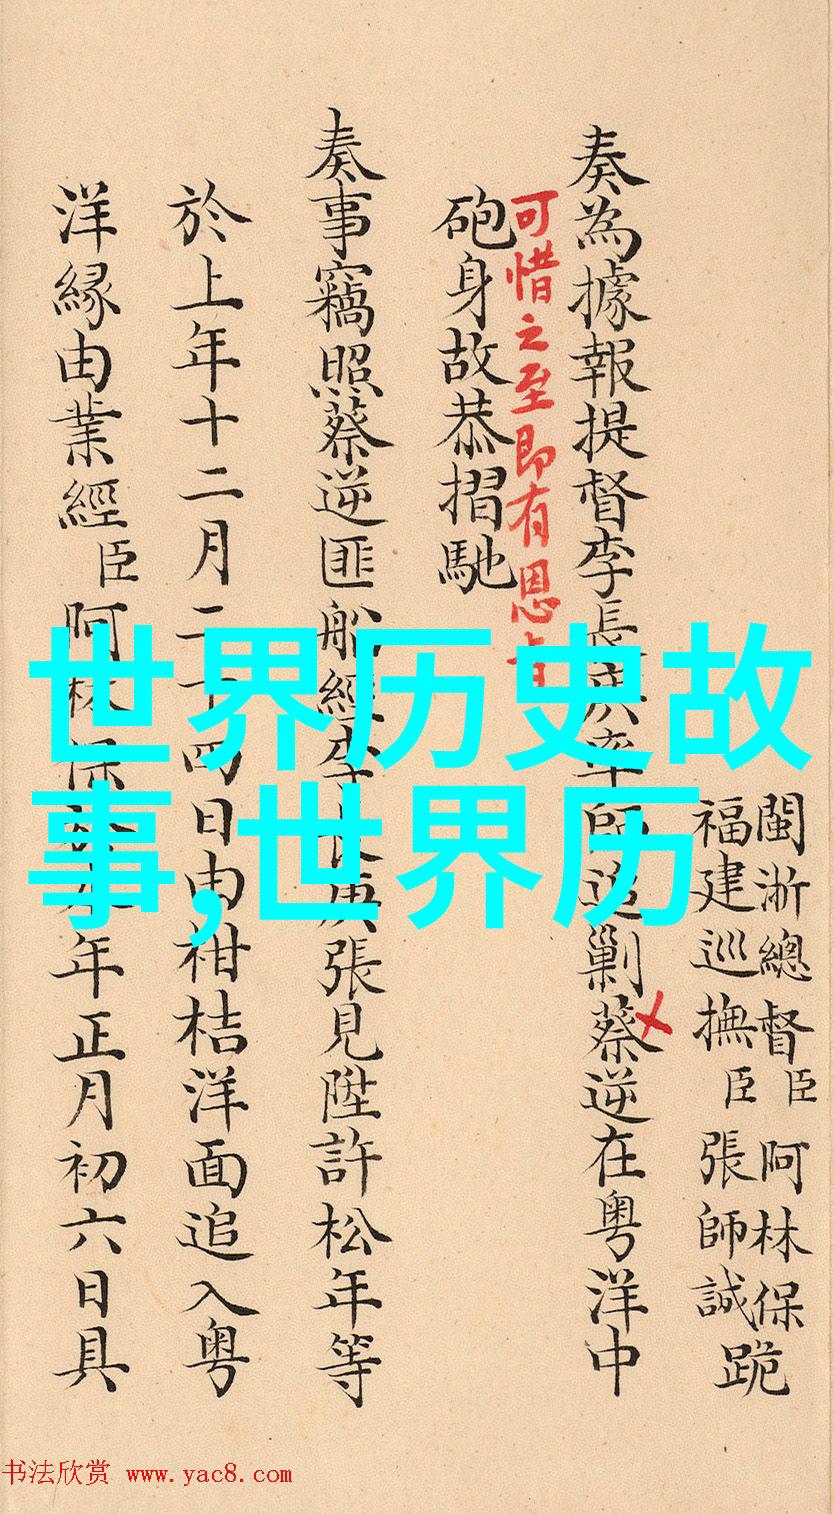 閩浙總督臣阿林保
福建巡撫臣張師誠跪
奏為據報提督李長庚率師追剿蔡逆在粤洋中
可惜之至即有恩旨
砲身故恭摺馳
奏事竊照蔡逆匪船經李長庚張見陞許松年等
於上年十二月二十四日由柑桔洋面追入粤
洋緣由業經臣阿林保於本年正月初六日具
世界历史故
事,世界历
书法欣赏 www.yac8.com